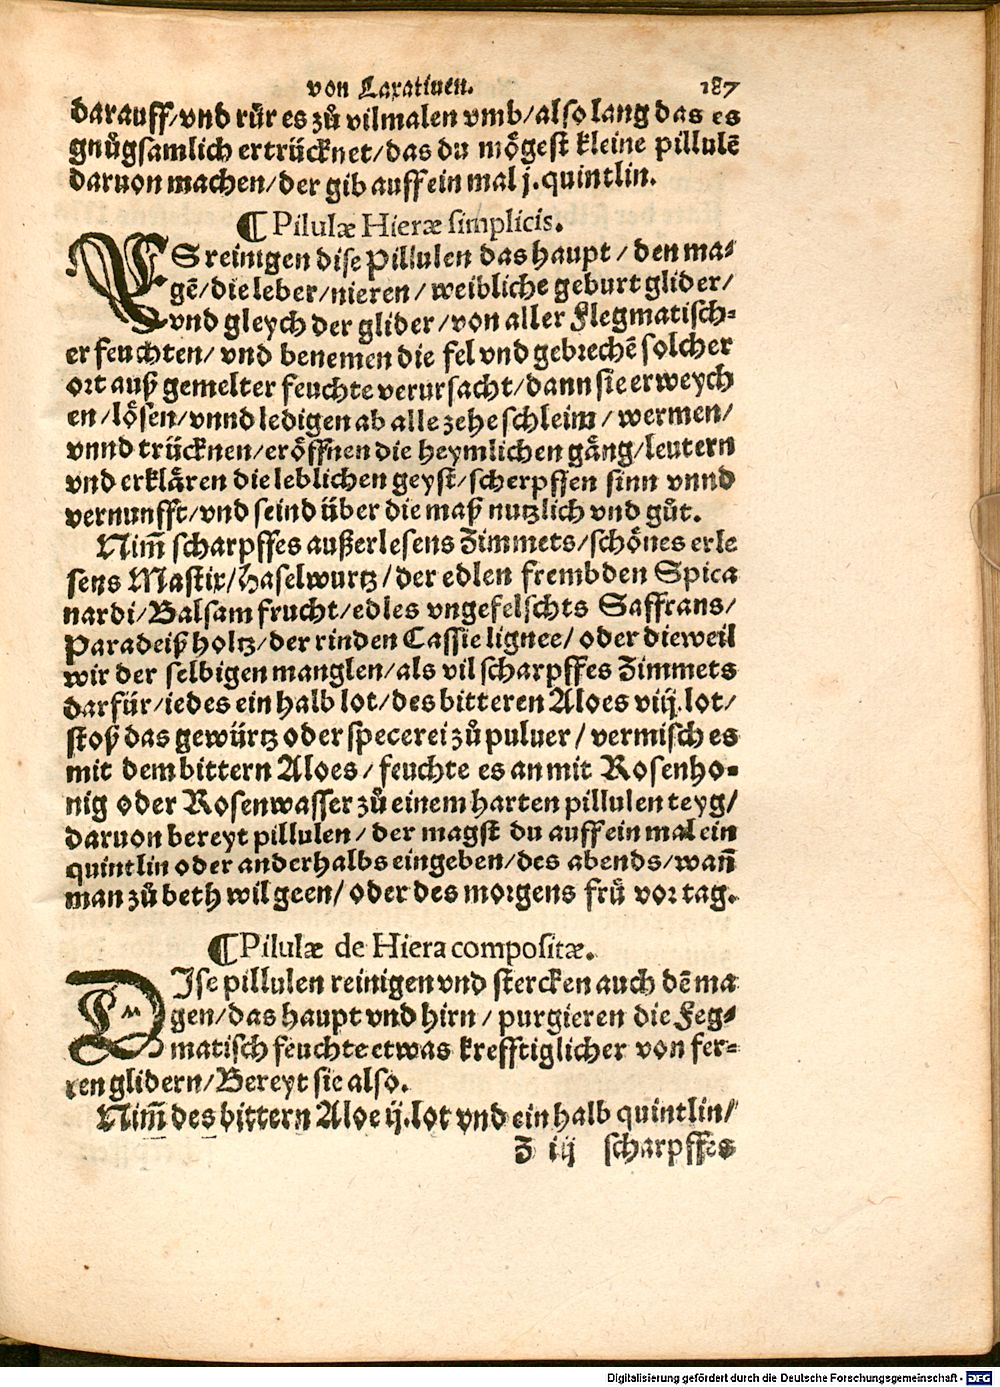 von Laxatiuen. 187
darauff/vnd rür es zů vilmalen vmb/also lang das es
gnůgsamlich ertrücknet/das du mögest kleine pillulē
daruon machen/der gib auff ein mal j. quintlin.
¶ Pilulæ Hieræ simplicis.
ES reinigen dise Pillulen das haupt / den ma⸗
gē/die leber/nieren/weibliche geburt glider/
vnd gleych der glider/von aller Flegmatisch⸗
er feuchten/ vnd benemen die fel vnd gebrechē solcher
ort auß gemelter feuchte verursacht/dann sie erweych
en/lösen/vnnd ledigen ab alle zehe schleim/ wermen/
vnnd trücknen/eröffnen die heymlichen gäng/leutern
vnd erklären die leblichen geyst/scherpffen sinn vnnd
vernunfft/vnd seind über die maß nutzlich vnd gůt.
Nim̄ scharpffes außerlesens Zimmets/schönes erle
sens Mastix/Haselwurtz/der edlen frembden Spica
nardi/Balsam frucht/edles vngefelschts Saffrans/
Paradeiß holtz/der rinden Cassie lignee/ oder dieweil
wir der selbigen manglen/als vil scharpffes Zimmets
darfür/iedes ein halb lot/des bitteren Aloes viij. lot/
stoß das gewürtz oder specerei zů puluer / vermisch es
mit dem bittern Aloes/ feuchte es an mit Rosenho⸗
nig oder Rosenwasser zů einem harten pillulen teyg/
daruon bereyt pillulen/ der magst du auff ein mal ein
quintlin oder anderhalbs eingeben/des abends/wañ
man zů beth wil geen/ oder des morgens frů vor tag.
¶ Pilulæ de Hiera compositæ.
DIse pillulen reinigen vnd stercken auch dē ma
gen/das haupt vnd hirn / purgieren die Feg⸗
matisch feuchte etwas krefftiglicher von fer⸗
ren glidern/Bereyt sie also.
Nim̄ des bittern Aloe ij. lot vnd ein halb quintlin/
Z iij scharpffes
Digitalisierung gefördert durch die Deutsche Forschungsgemeinschaft - DFG